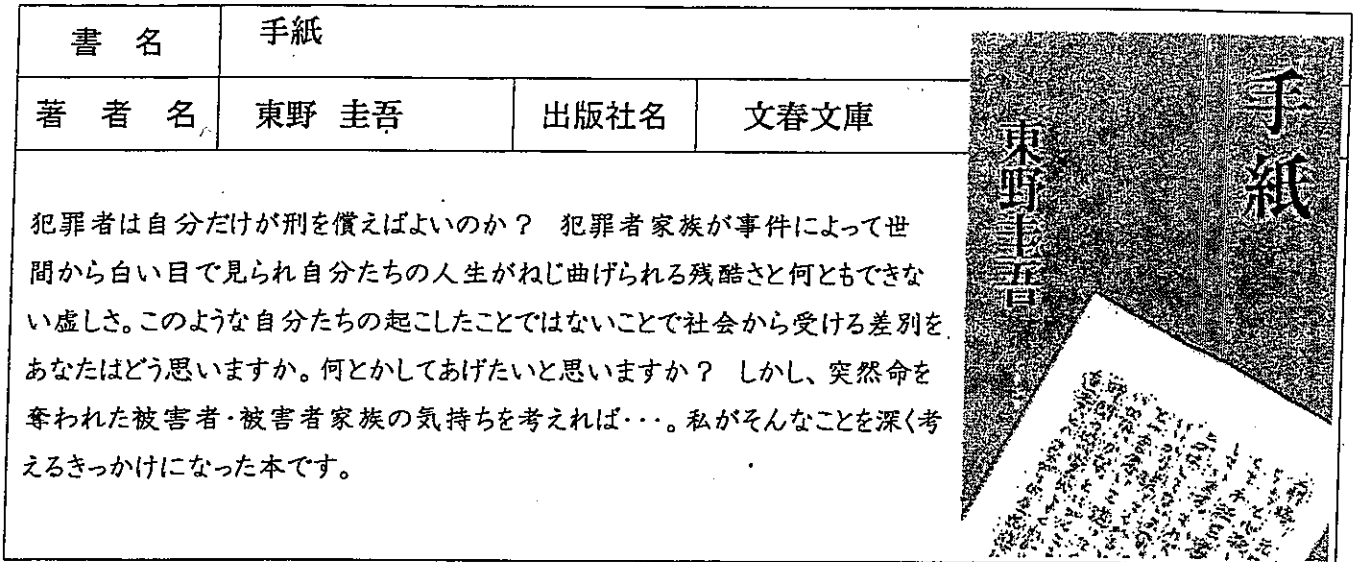 書 名 手紙
著 者 名 東野 圭吾 出版社名 文春文庫
犯罪者は自分だけが刑を償えばよいのか? 犯罪者家族が事件によって世
間から白い目で見られ自分たちの人生がねじ曲げられる残酷さと何ともできな
い虚しさ。このような自分たちの起こしたことではないことで社会から受ける差別を
あなたはどう思いますか。何とかしてあげたいと思いますか? しかし、突然命を
奪われた被害者・被害者家族の気持ちを考えれば・・・。私がそんなことを深く考
えるきっかけになった本です。
手紙
東野圭吾